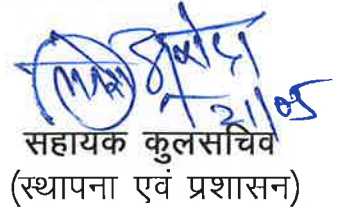 21/05
सहायक कुलसचिव
(स्थापना एवं प्रशासन)